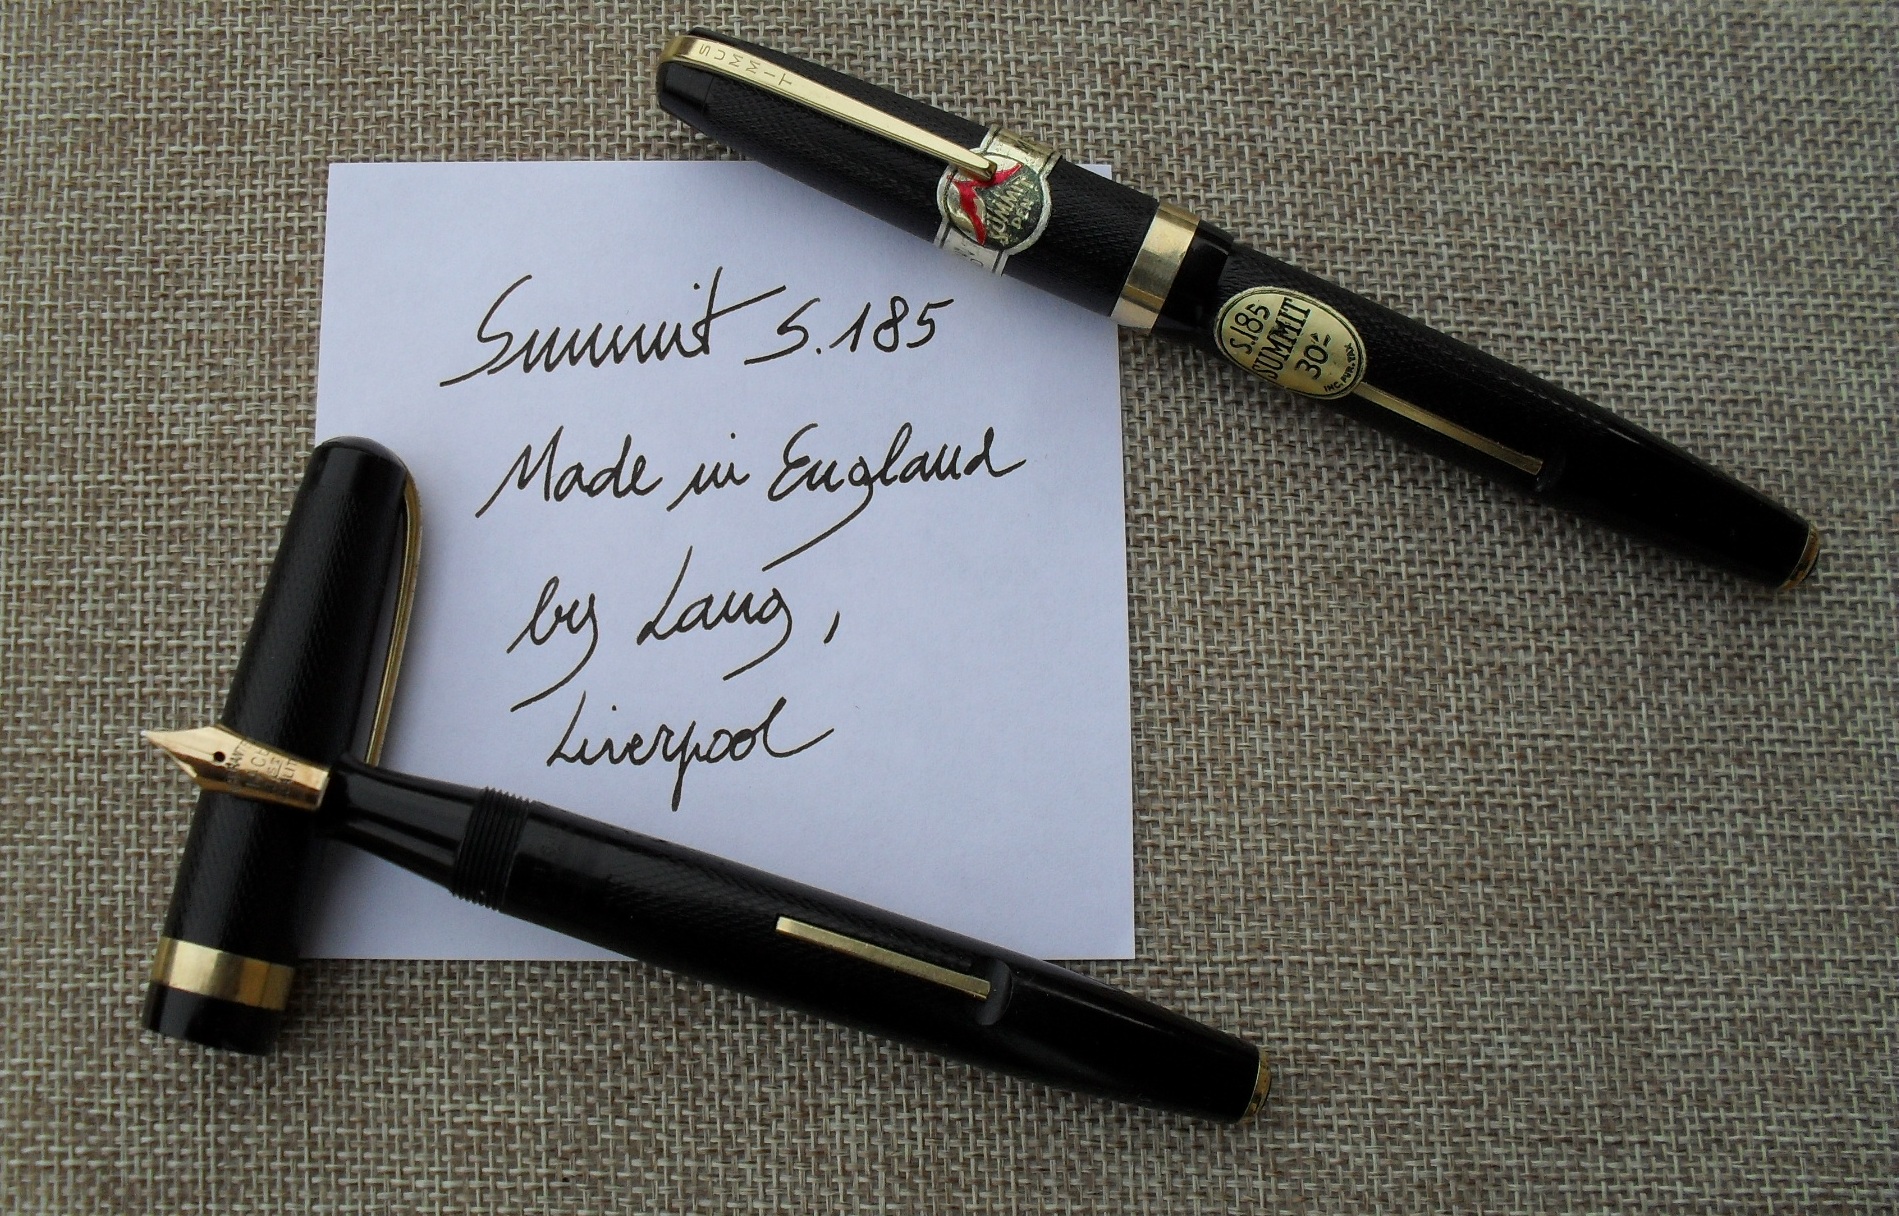 SUMMIT
SUMMIT
PEN
S.185
SUMMIT
30/-
INC. PUR. TAX
Summit S.185
Made in England
by Lang,
Liverpool